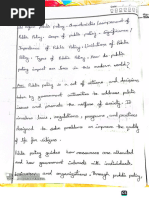 Public policy - Characteristics/components of
Public Policy. Scope of public policy - Significance /
Importance of Public Policy - Limitations of Public
Policy - Types of Public Policy - How do public
policy impact our lives in this modern world?
Public policy is a set of actions and decisions
made by government authorities to address public
issues and promote the welfare of society. It
involves laws, regulations, programs, and practices
designed to solve problems or improve the quality
of life for citizens.
Public policy guides how resources are allocated
and how government interacts with individuals,
businesses and organizations. Through public policy,